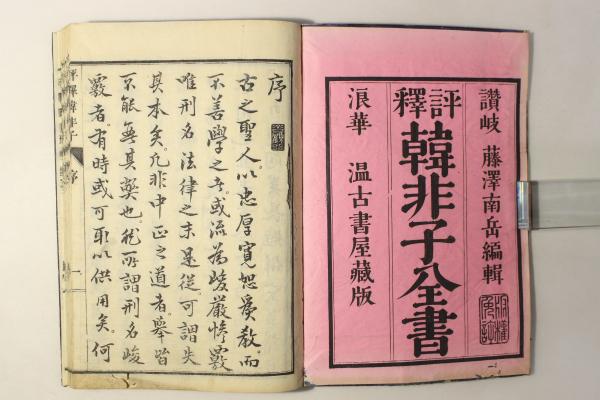 讃岐 藤澤南岳編輯
版權免許
評釋 韓非子全書
浪華 温古書屋藏版
序
古之聖人以忠厚寬恕爲教而
不善學之者或流為峻嚴慘覈
唯刑名法律之末是從可謂失
其本矣凡非中正之道者舉皆
不能無其弊也然所謂刑名峻
覈者有時或可取以供用矣何
評釋韓非子 序 一